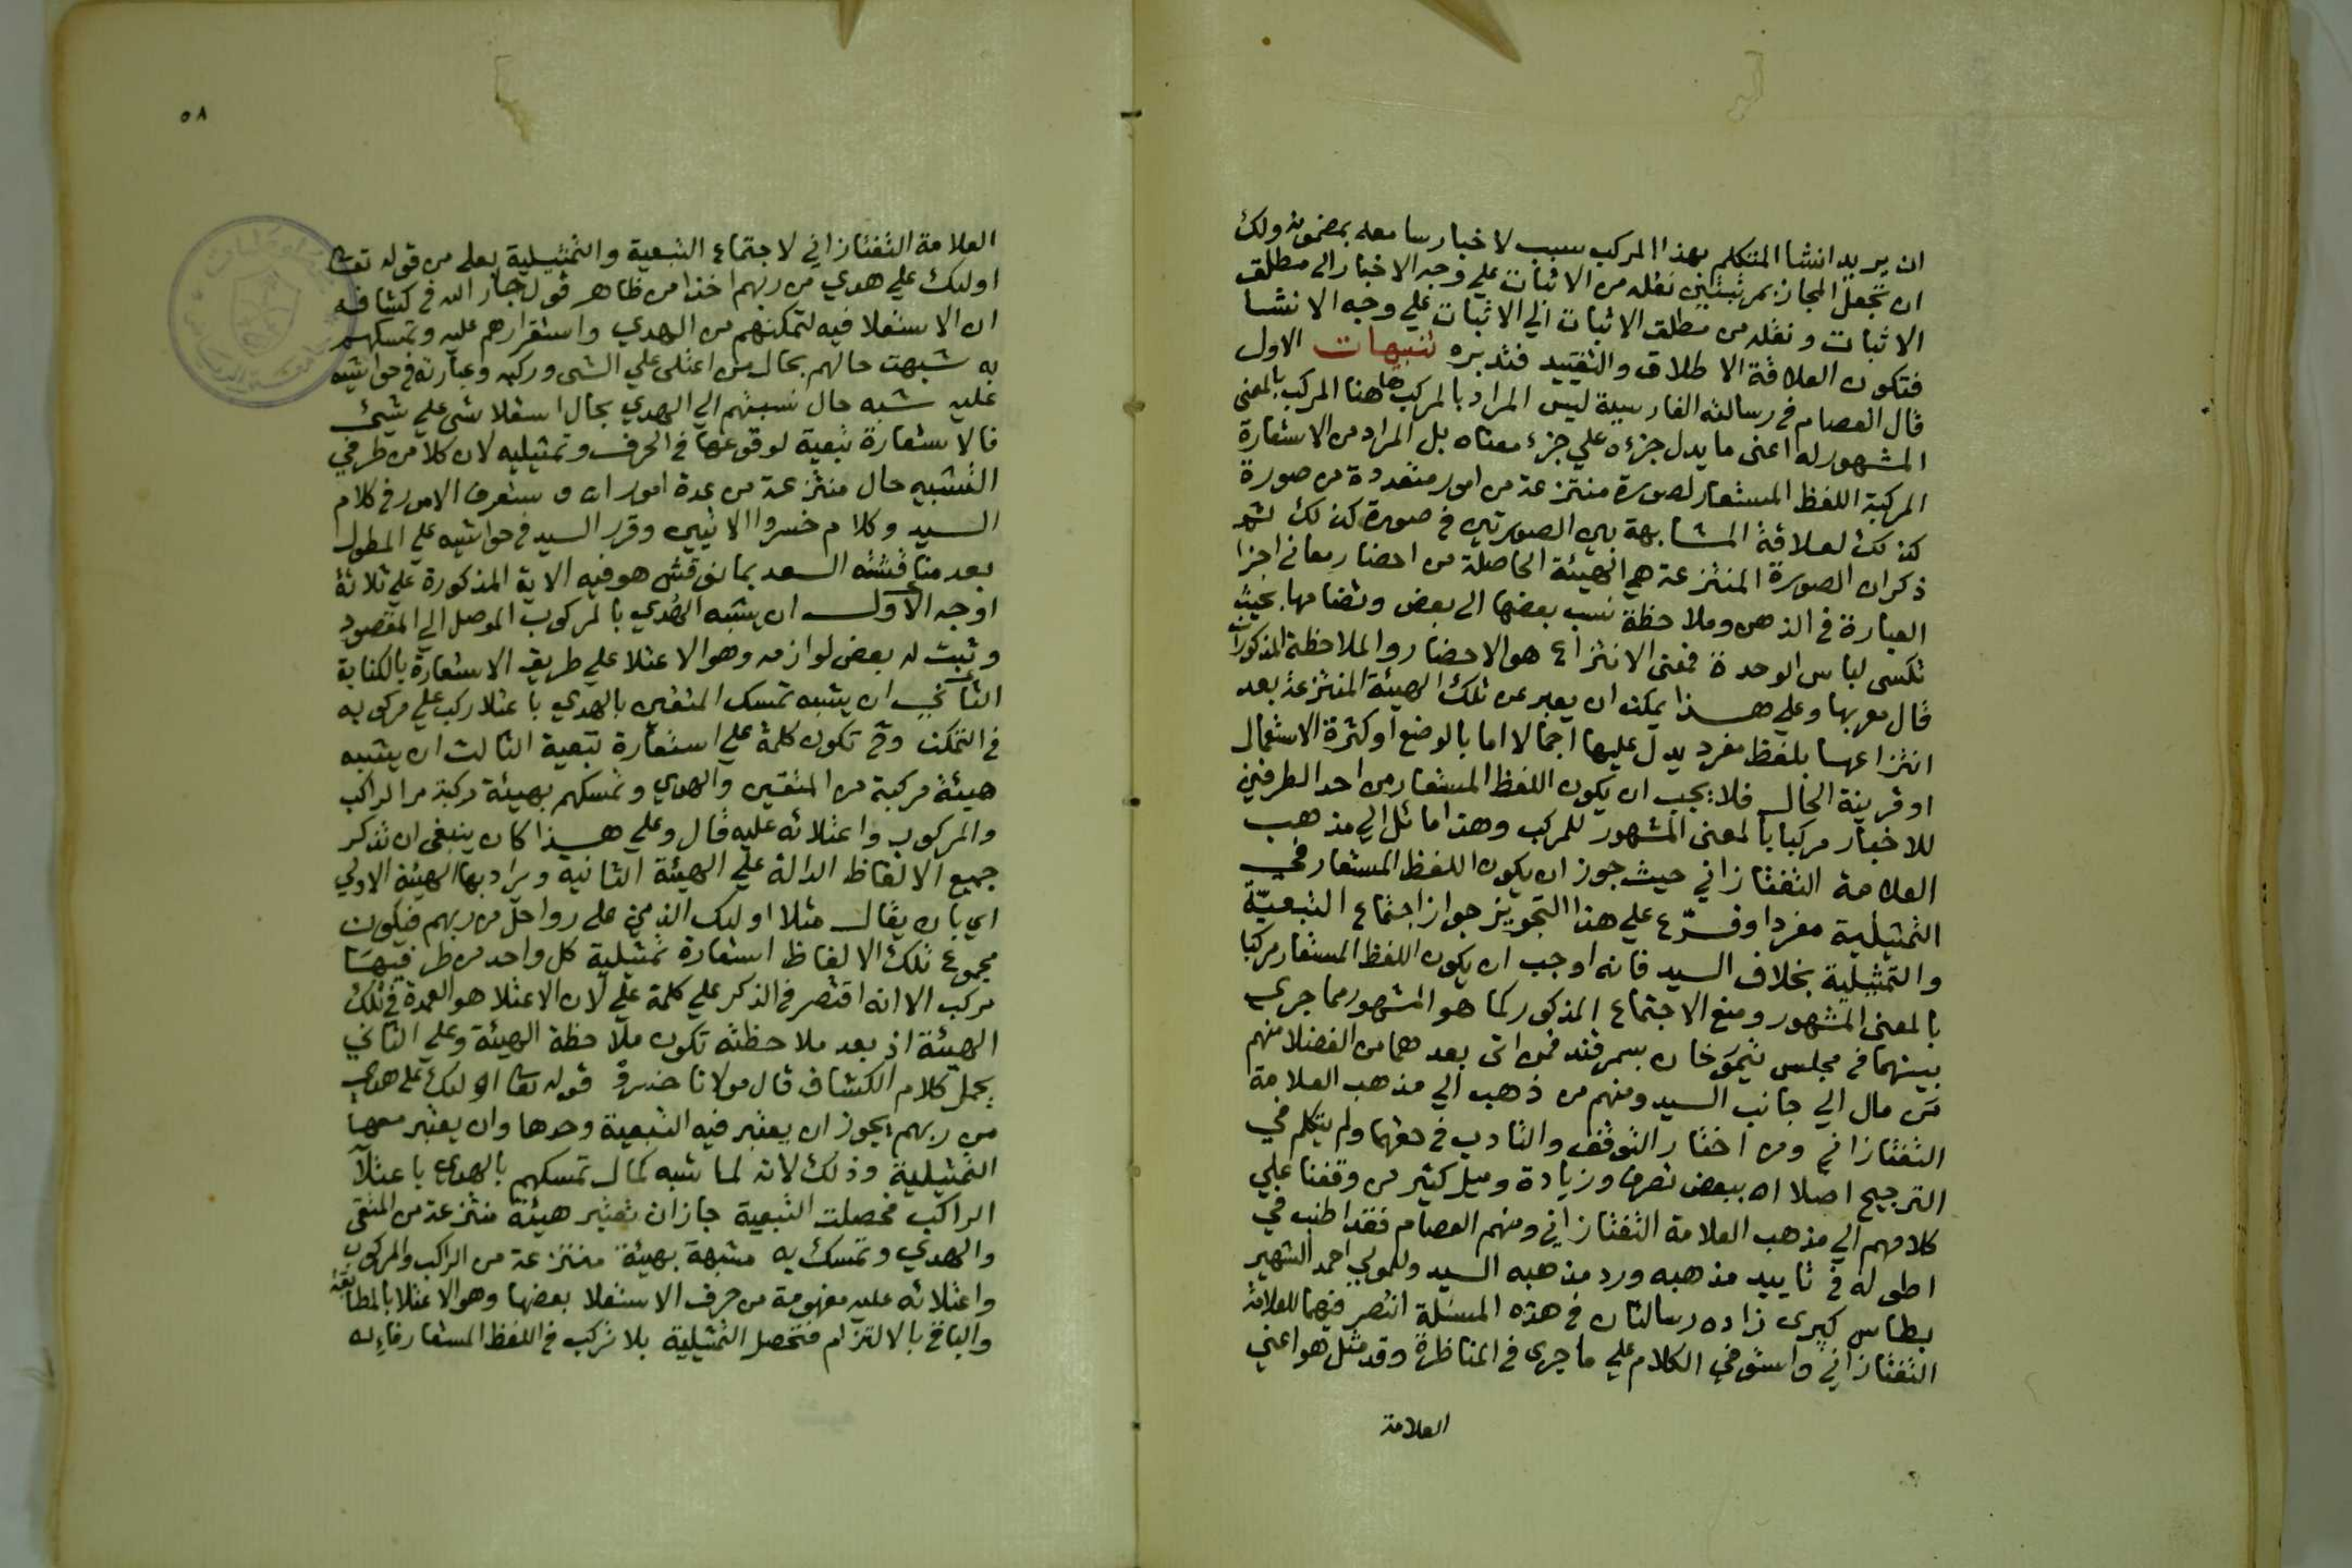 ان يريد انشا المتكلم بهذا المركب سبب لاخبار سامعه بمضمونه ولك
ان تجعل المجاز بمرتبتين نقله من الاثبات علي وجه الاخبار الى مطلق
الاثبات ونقله من مطلق الاثبات الي الاثبات علي وجه الانشا
فتكون العلاقة الاطلاق والتقييد فتدبره تنبيهات الاول
قال العصام في رسالته الفارسية ليس المراد بالمركب هاهنا المركب بالمعنى
المشهور له اعنى ما يدل جزءه علي جزء معناه بل المراد من الاستعارة
المركبة اللفظ المستعار لصورة منتزعة من امور متعددة من صورة
كذلك لعلاقة المشابهة بين الصورتين في صورة كذلك ثم
ذكر ان الصورة المنتزعة هي الهيئة الحاصلة من احضار معاني اجزا
العبارة في الذهن وملاحظة نسب بعضها الى بعض وتضامها بحيث
تكسى لباس الوحدة فمعنى الانتزاع هو الاحضار والملاحظة المذكوران
قال معربها وعلي هذا يمكن ان يعبر عن تلك الهيئة المنتزعة بعد
انتزاعها بلفظ مفرد يدل عليها اجمالا اما بالوضع او كثرة الاستعمال
او قرينة الحال فلا يجب ان يكون اللفظ المستعار من احد الطرفين
للاخبار مركبا بالمعنى المشهور للمركب وهذا مائل الي مذهب
العلامة التفتازاني حيث جوز ان يكون اللفظ المستعار في
التمثيلية مفردا وفرّع علي هذا التجويز جواز اجتماع التبعيّة
والتمثيلية بخلاف السيد فانه اوجب ان يكون اللفظ المستعار مركبا
بالمعنى المشهور ومنع الاجتماع المذكور كما هو المشهور مما جرى
بينهما في مجلس تيمور خان بسمرقند فمن اتى بعدهما من الفضلا منهم
من مال الي جانب السيد ومنهم من ذهب الي مذهب العلامة
التفتازاني ومن اختار التوقف والتادب في حقهما ولم يتكلم في
الترجيح اصلا اه ببعض تصرف وزيادة وميل كثير من وقفنا علي
كلامهم الي مذهب العلامة التفتازاني ومنهم العصام فقد اطنب في
اطوله في تاييد مذهبه ورد مذهبه السيد وللمولي احمد الشهير
بطاس كبرى زاده رسالتان في هذه المسئلة انتصر فيهما للعلامة
التفتازاني واستوفي الكلام علي ما جرى في المناظرة وقد مثل هو اعني
العلامة
٥٨
العلامة التفتازاني لاجتماع التبعية والتمثيلية بعلى من قوله تعالى
اولئك علي هدي من ربهم اخذا من ظاهر قول جار الله في كشافه
ان الاستعلا فيه لتمكنهم من الهدي واستقرارهم عليه وتمسكهم
به شبهت حالهم بحال من اعتلى علي الشى وركبه وعبارته في حواشيه
عليه شبه حال نسبتهم الي الهدي بحال استعلا شى علي شيئ
فالاستعارة تبعية لوقوعها في الحرف وتمثيليه لان كلا من طرفي
التشبيه حال منتزعة من عدة امور اه وستعرف الامور في كلام
السيد وكلام خسروا الاتيين وقرر السيد في حواشيه علي المطول
بعد مناقشته السعد بما نوقش هو فيه الاية المذكورة علي ثلاثة
اوجه الاول ان يشبه الهدي بالمركوب الموصل الي المقصود
وثبت له بعض لوازمه وهو الاعتلا علي طريق الاستعارة بالكناية
الثاني ان يشبه تمسك المتقين بالهدي باعتلا ركب علي مركوبه
في التمكن وح تكون كلمة علي استعارة تبعية الثالث ان يشبه
هيئة مركبة من المتقين والهدي وتمسكهم بهيئة مركبة من الراكب
والمركوب واعتلائه عليه قال وعلي هذا كان ينبغى ان تذكر
جميع الالفاظ الدالة علي الهيئة الثانية ويراد بها الهيئة الاولي
اي بان يقال مثلا اولئك الذين على رواحل من ربهم فيكون
مجموع تلك الالفاظ استعارة تمثيلية كل واحد من طرفيها
مركب الا انه اقتصر في الذكر علي كلمة علي لان الاعتلا هو العمدة في تلك
الهيئة اذ بعد ملاحظته تكون ملاحظة الهيئة وعلي الثاني
يحمل كلام الكشاف قال مولانا خسرو قوله تعا اولئك على هدي
من ربهم يجوز ان يعتبر فيه التبعية وحدها وان يعتبر معها
التمثيلية وذلك لانه لما شبه كمال تمسكهم بالهدى باعتلا
الراكب فحصلت التبعية جاز ان تعتبر هيئة منتزعة من المتقى
والهدي وتمسك به مشبهة بهيئة منتزعة من الراكب والمركوب
واعتلائه عليه مفهومة من حرف الاستعلا بعضها وهو الاعتلا بالمطابقة
والباقي بالالتزام فتحصل التمثيلية بلا تركب في اللفظ المستعار فاءله